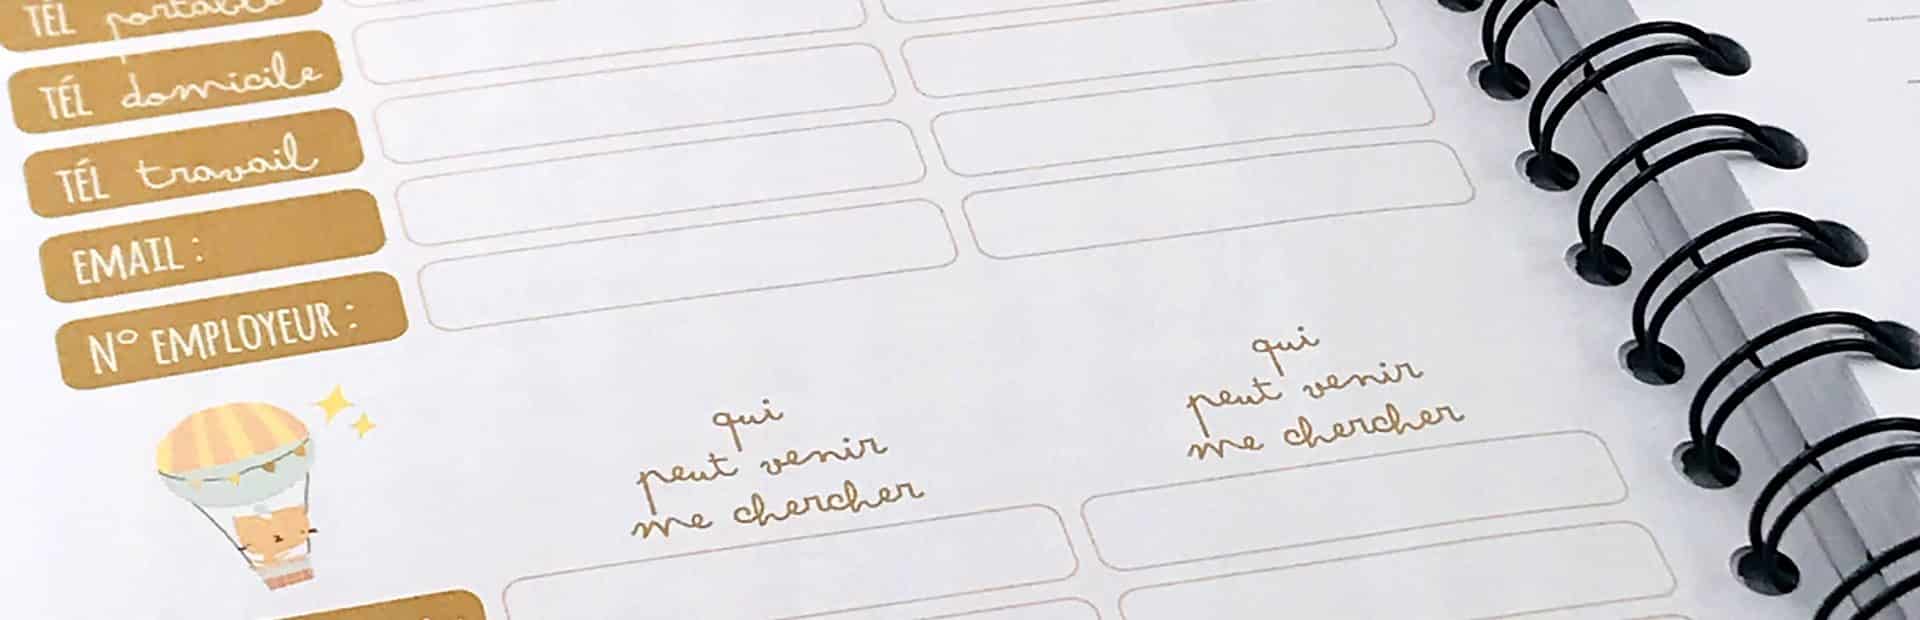 TÉL portable
TÉL domicile
TÉL travail
EMAIL :
N° EMPLOYEUR :
qui
peut venir
me chercher
qui
peut venir
me chercher